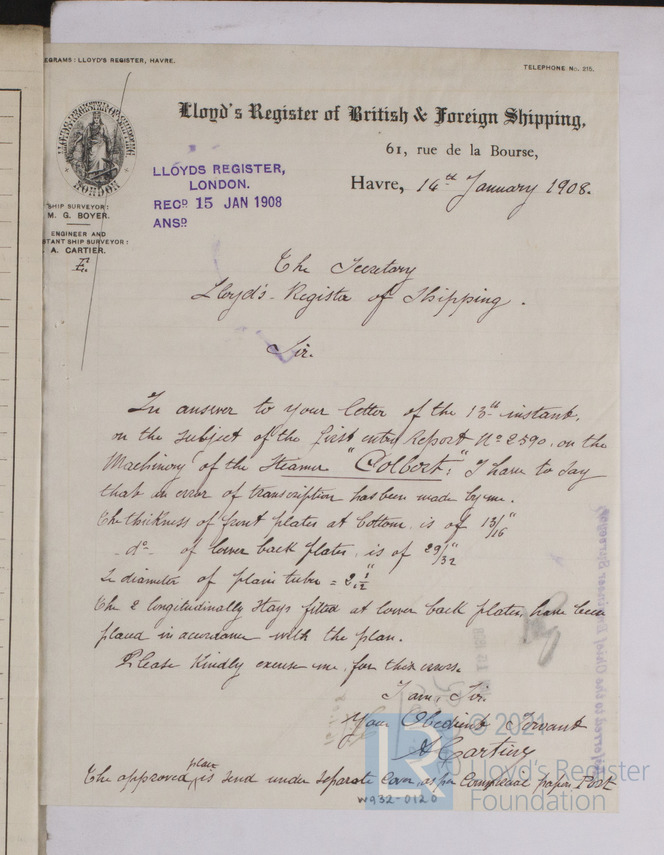 EGRAMS: LLOYD'S REGISTER, HAVRE.
TELEPHONE No. 215.
Lloyd's Register of British & Foreign Shipping,
61, rue de la Bourse,
Havre, 14th January 1908.
LLOYDS REGISTER,
LONDON.
RECD 15 JAN 1908
ANSD
LONDON
SHIP SURVEYOR:
M. G. BOYER.
ENGINEER AND
TANT SHIP SURVEYOR:
A. CARTIER.
The Secretary
Lloyd's Register of Shipping.
Sir.
In answer to your letter of the 13th instant,
on the subject of the first entry Report No 2590, on the
Machinery of the Steamer "Colbert"; I have to say
that an error of transcription has been made by me.
The thickness of front plates at bottom is of 13/16"
do of lower back plates is of 29/32"
diameter of plain tubes = 2 1/2"
The 2 longitudinally stays fitted at lower back plates, have been
placed in accordance with the plan.
Please kindly excuse me for this error.
I am, Sir.
Your Obedient Servant
A Cartier
The approved plan is send under separate cover, as per Commercial paper Post
W932-0120
© 2021
LR
Lloyd's Register
Foundation
Referred to the Chief Engineer Surveyor